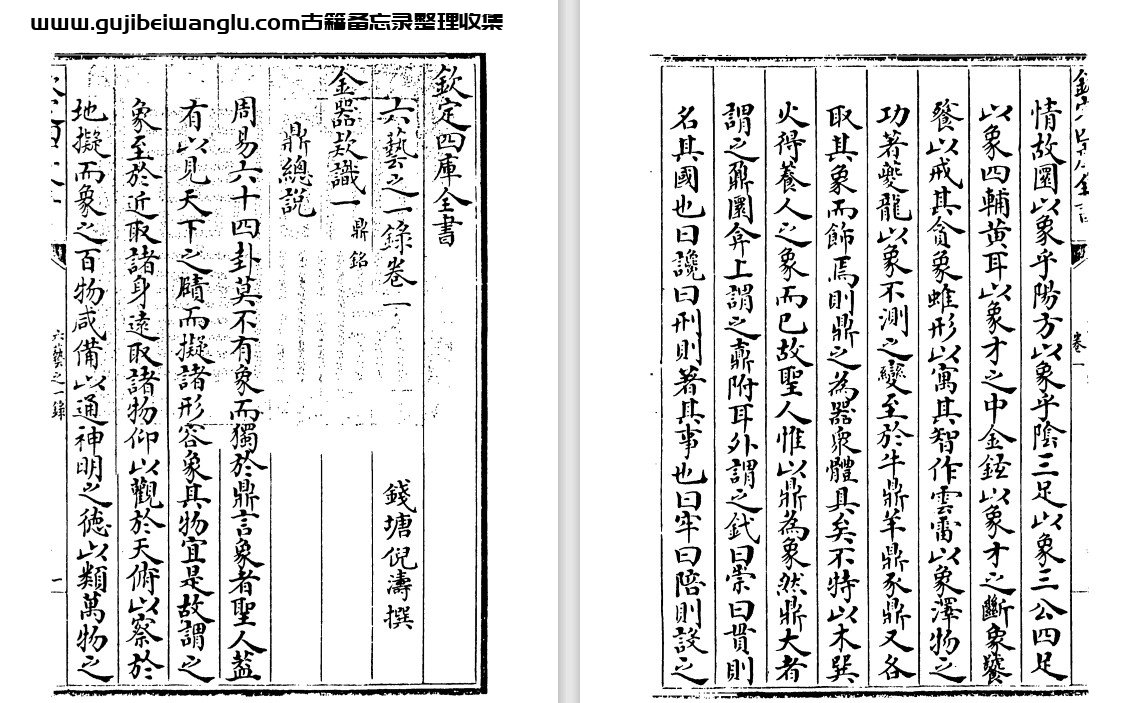 www.gujibeiwanglu.com古籍备忘录整理收集
欽定四庫全書
六藝之一錄卷一
錢塘倪濤撰
金器款識一
鼎銘
鼎總說
周易六十四卦莫不有象而獨於鼎言象者聖人葢
有以見天下之賾而擬諸形容象其物宜是故謂之
象至於近取諸身遠取諸物仰以觀於天俯以察於
地擬而象之百物咸備以通神明之徳以類萬物之
六藝之一錄
一
卷一
情故圜以象乎陽方以象乎陰三足以象三公四足
以象四輔黄耳以象才之中金鉉以象才之斷象饕
餮以戒其貪象蜼形以寓其智作雲雷以象澤物之
功著夔龍以象不測之變至於牛鼎羊鼎豕鼎又各
取其象而飾焉則鼎之為器衆體具矣不特以木巽
火得養人之象而已故聖人惟以鼎為象然鼎大者
謂之鼐圜弇上謂之鼒附耳外謂之釴曰崇曰貫則
名其國也曰讒曰刑則著其事也曰牢曰陪則設之